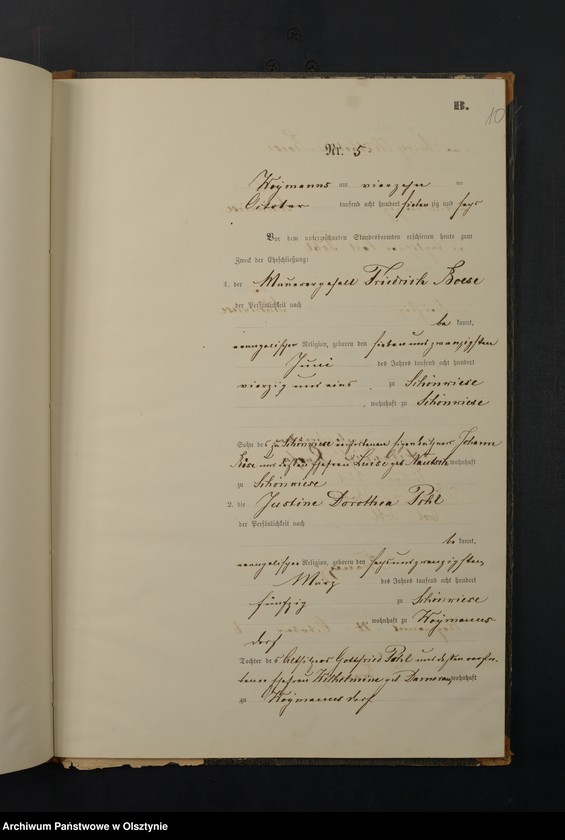 B.
10
Nr. 5
Koÿmanns am vierzehn ten
October tausend acht hundert sieben zig und sechs
Vor dem unterzeichneten Standesbeamten erschienen heute zum
Zweck der Eheschließung:
1. der Maurergesell Friedrich Boese
der Persönlichkeit nach
be kannt,
evangelischer Religion, geboren den sieben und zwanzigsten
Juni des Jahres tausend acht hundert
vierzig und eins zu Schönwiese
, wohnhaft zu Schönwiese
Sohn des zu Schönwiese verstorbenen Eigenkäthners Johann
Böse und dessen Ehefrau Luise geb wohnhaft
zu Schönwiese
2. die Justine Dorothea Pohl
der Persönlichkeit nach
be kannt,
evangelischer Religion, geboren den sechs und zwanzigsten
März des Jahres tausend acht hundert
fünfzig zu Schönwiese
, wohnhaft zu Koÿmanns
dorf
Tochter des Altsitzers Gottfried Pohl und dessen verstor-
benen Ehefrau Wilhelmine geb Damerau wohnhaft
zu Koÿmanns dorf
Archiwum Państwowe w Olsztynie